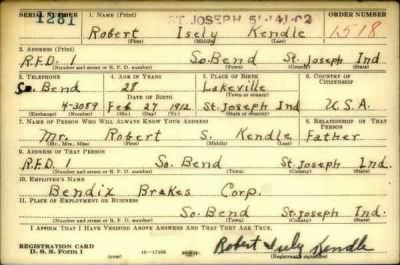 SERIAL NUMBER 1. NAME (Print) ST. JOSEPH 51-141-02 ORDER NUMBER
1281 Robert Isely Kendle 1518
(First) (Middle) (Last)
2. ADDRESS (Print)
R.F.D. 1 So. Bend St. Joseph Ind
(Number and street or R. F. D. number) (Town) (County) (State)
3. TELEPHONE 4. AGE IN YEARS 5. PLACE OF BIRTH 6. COUNTRY OF CITIZENSHIP
So. Bend 28 Lakeville
DATE OF BIRTH (Town or county)
4-3089 Feb 27 1912 St. Joseph Ind U.S.A.
(Exchange) (Number) (Mo.) (Day) (Yr.) (State or country)
7. NAME OF PERSON WHO WILL ALWAYS KNOW YOUR ADDRESS 8. RELATIONSHIP OF THAT PERSON
Mr. Robert S. Kendle Father
(Mr., Mrs., Miss) (First) (Middle) (Last)
9. ADDRESS OF THAT PERSON
R.F.D. 1 So. Bend St. Joseph Ind.
(Number and street or R. F. D. number) (Town) (County) (State)
10. EMPLOYER'S NAME
Bendix Brakes Corp.
11. PLACE OF EMPLOYMENT OR BUSINESS
So. Bend St. Joseph Ind.
(Number and street or R. F. D. number) (Town) (County) (State)
I AFFIRM THAT I HAVE VERIFIED ABOVE ANSWERS AND THAT THEY ARE TRUE.
REGISTRATION CARD
D. S. S. Form 1 (over) Robert Isely Kendle